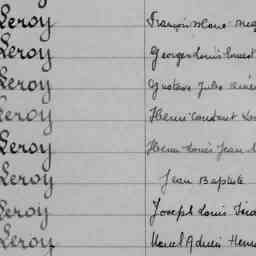 Leroy François Marie
Leroy Georges Louis Ernest
Leroy Gustave Jules
Leroy Henri Constant
Leroy Henri Louis Jean
Leroy Jean Baptiste
Leroy Joseph Louis
Leroy Marcel Adrien Henri